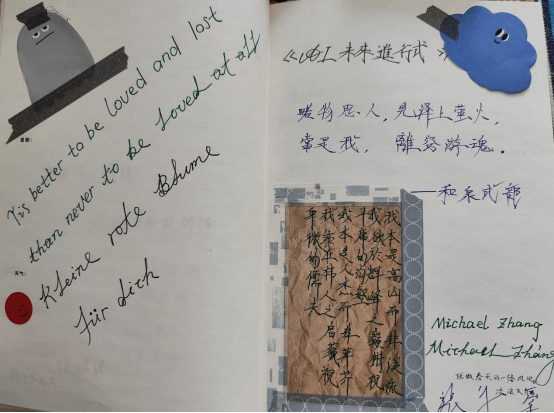 Tis better to be loved and lost
than never to be loved at all
Kleine rote Blume
für dich
未来進行式
睹物思人,見澤上萤火,
當是我,離窍游魂。
——和泉式部
我本是高山而非溪流
我欲於群峰之巅俯視
平庸的沟壑
我本是人杰而非草芥
我站在伟人之肩藐視
卑微的懦夫
Michael Zhang
Michael Zhang